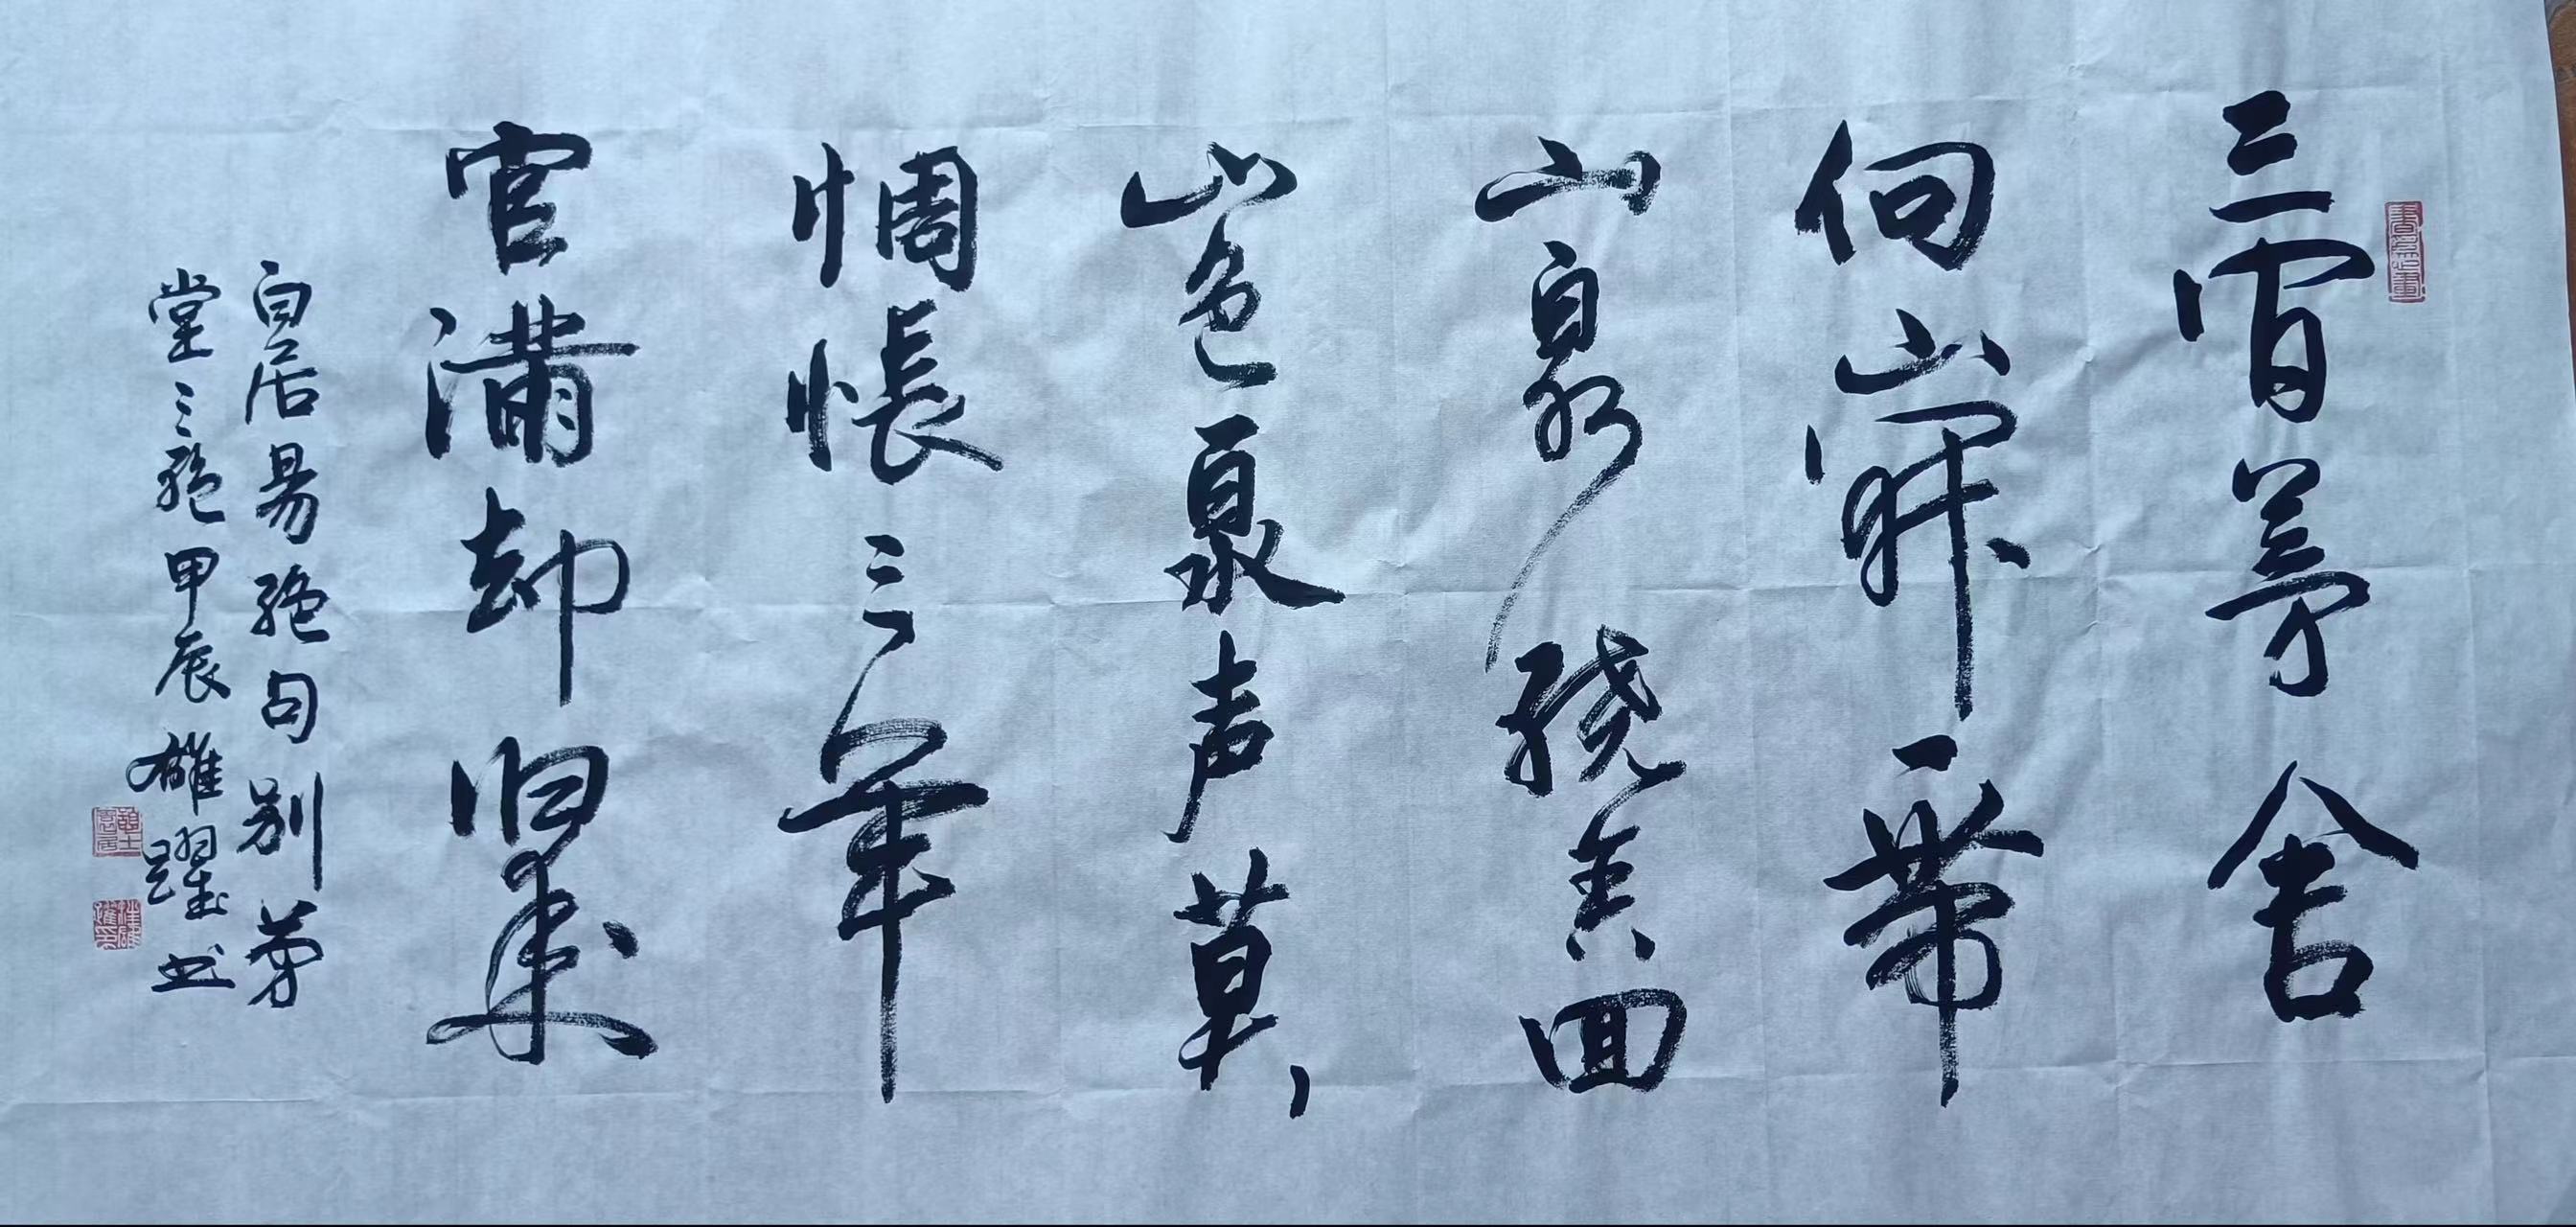 三间茅舍
向山开一带
山泉绕舍回
山色泉声莫、
惆怅三年
官满却归来
白居易绝句别茅
堂之三绝甲辰雄跃书